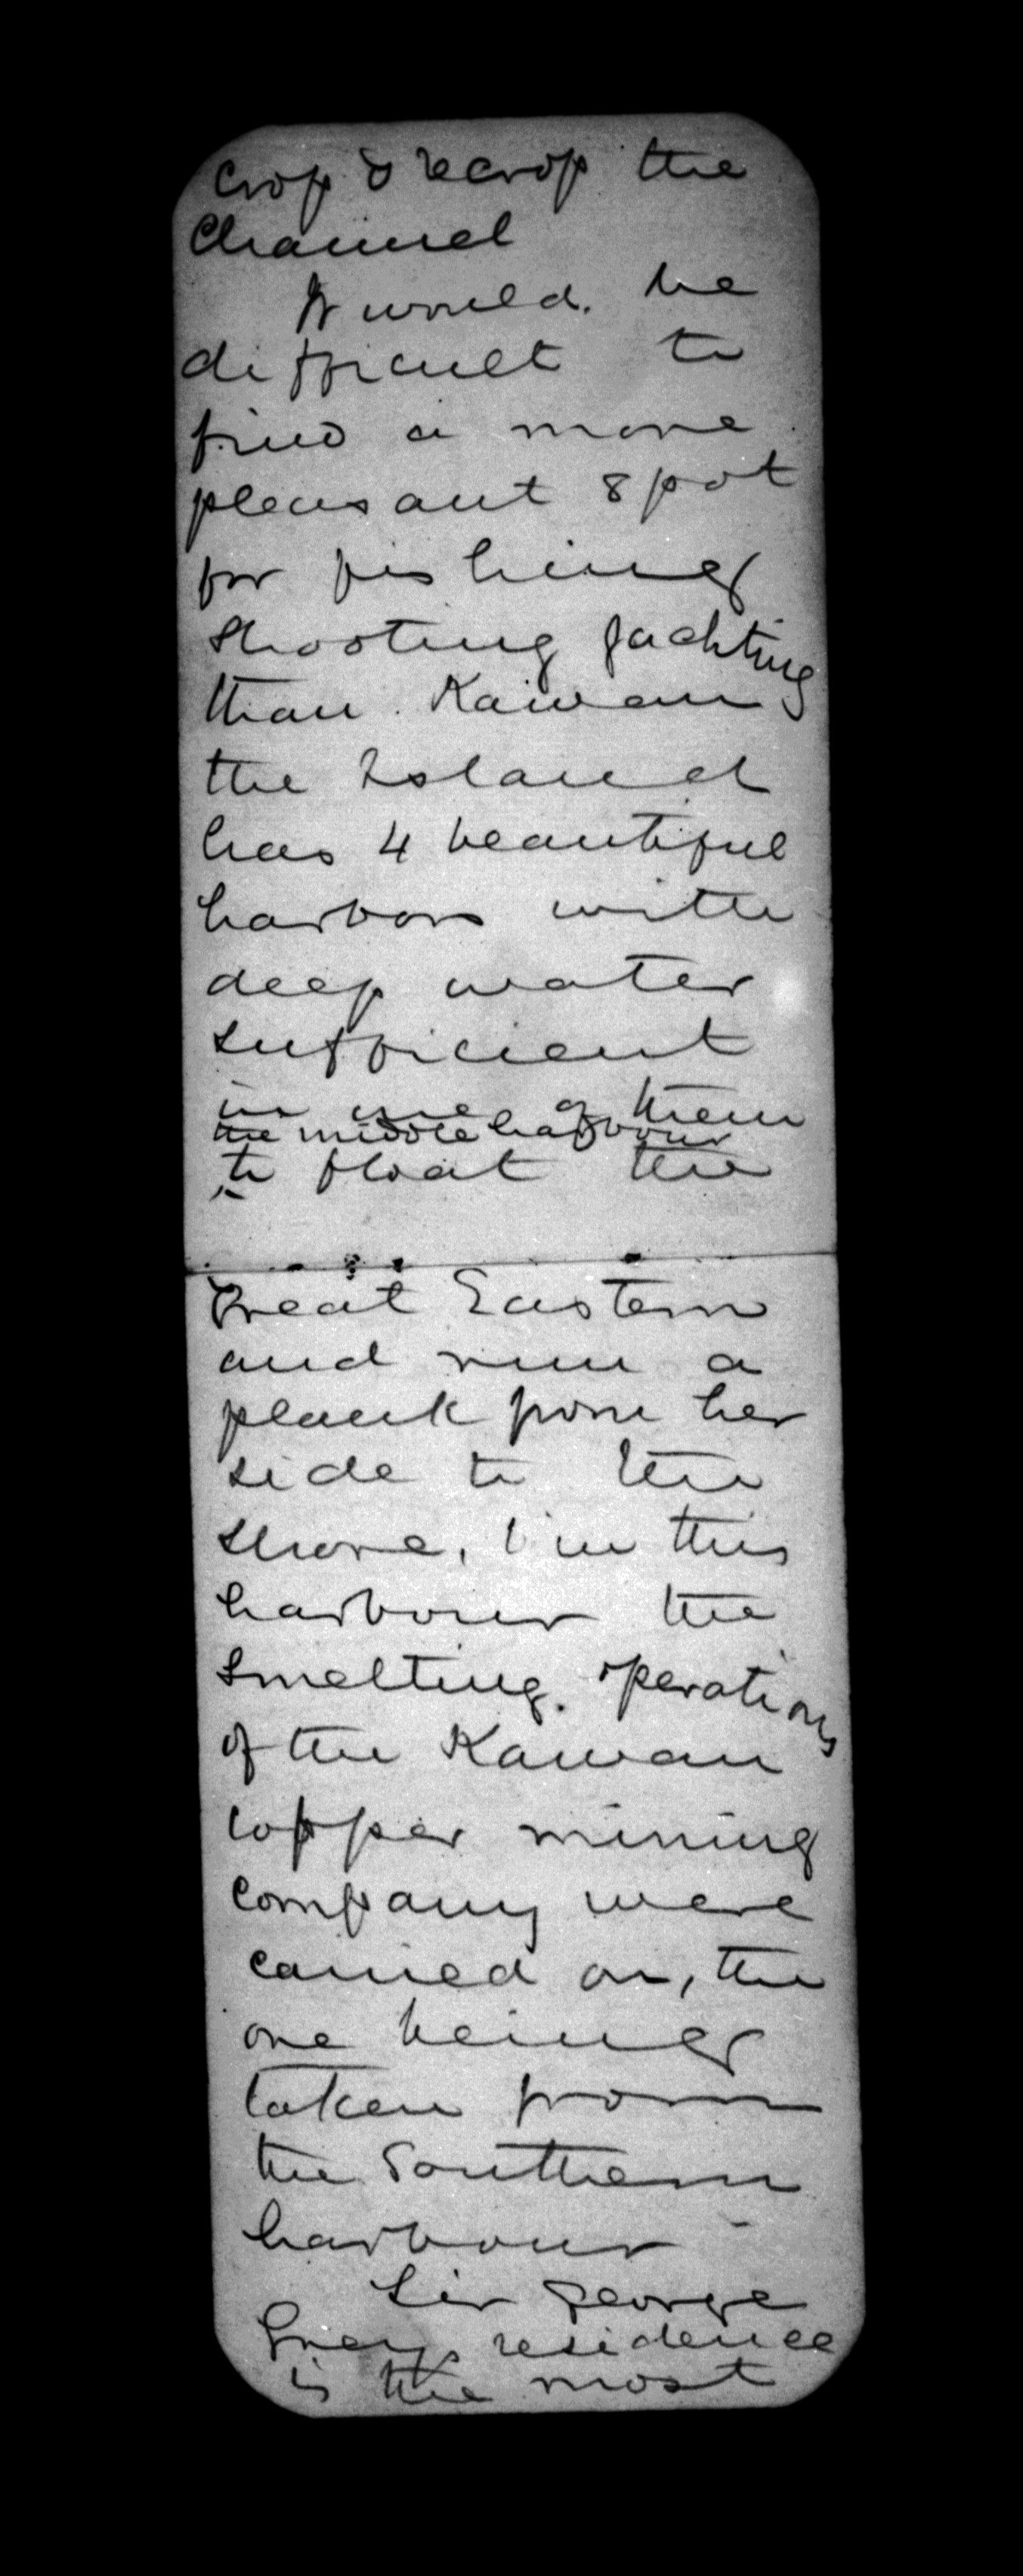 cross & recross the
Channel
It would. be
difficult to
find a more
pleasant spot
for fishing
shooting yachting
than Kawau
the Island
has 4 beautiful
harbors with
deep water
sufficient
in one of them
the middle harbour
to float the
Great Eastern
and run a
plank from her
side to the
shore, in this
harbour the
smelting. operations
of the Kawau
copper mining
company were
carried on, the
ore being
taken from
the Southern
harbour -
Sir George
Greys residence
is the most